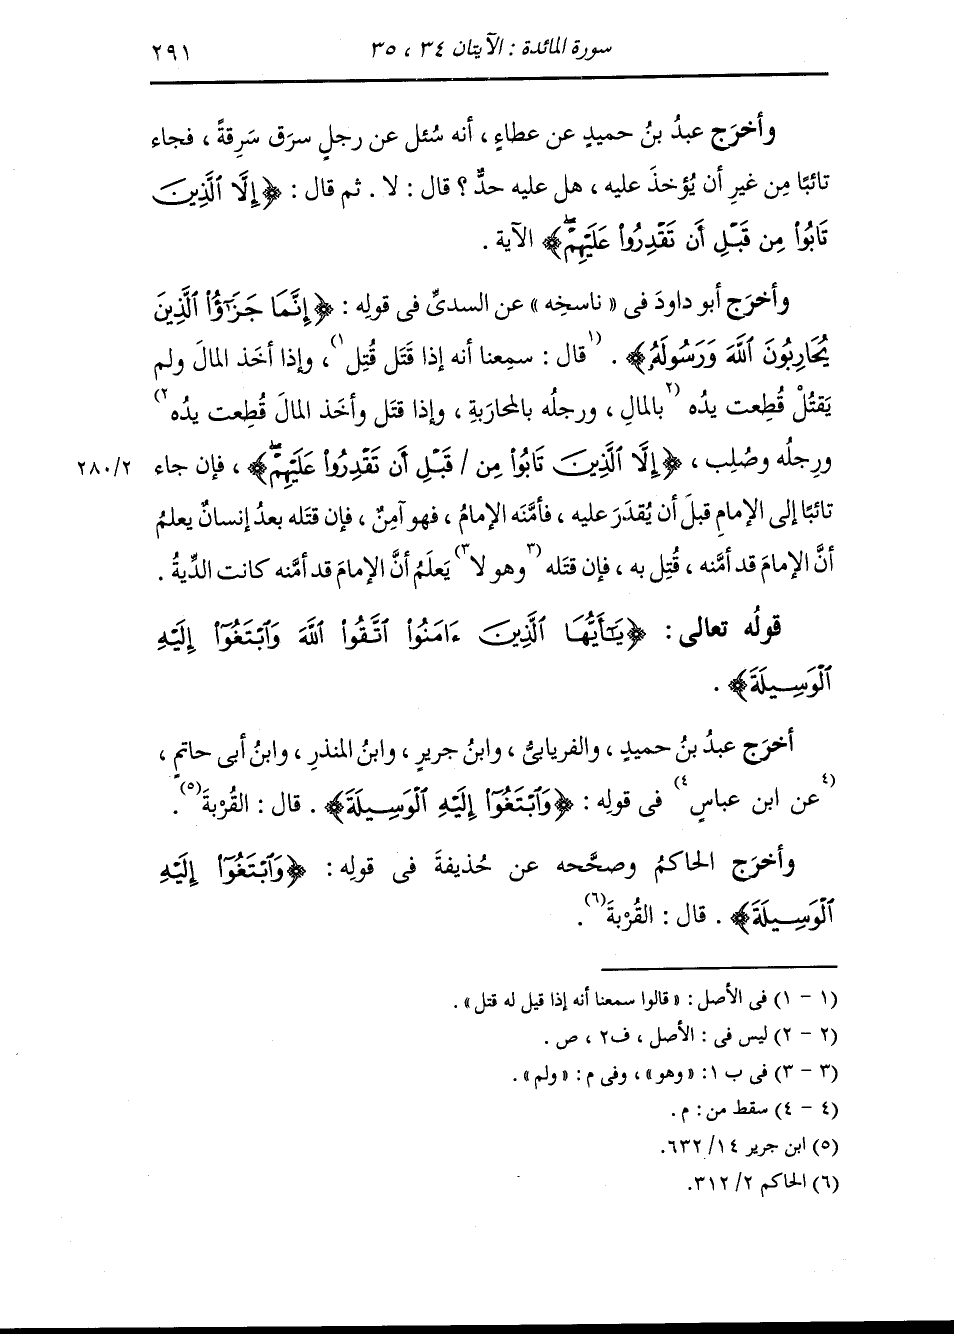 سورة المائدة : الآيتان ٣٤ ، ٣٥ ٢٩١
وأخرَج عبدُ بنُ حميدٍ عن عطاءٍ ، أنه سُئل عن رجلٍ سرَق سَرِقةً ، فجاء
تائبًا مِن غيرِ أن يُؤخذَ عليه ، هل عليه حدٌّ ؟ قال : لا . ثم قال : ﴿إِلَّا ٱلَّذِينَ
تَابُوا۟ مِن قَبْلِ أَن تَقْدِرُوا۟ عَلَيْهِمْۖ﴾ الآية .
وأخرَج أبو داودَ فى « ناسخِه » عن السدىِّ فى قولِه : ﴿إِنَّمَا جَزَٰٓؤُا۟ ٱلَّذِينَ
يُحَارِبُونَ ٱللَّهَ وَرَسُولَهُۥ﴾ . (١قال : سمِعنا أنه إذا قَتَل قُتِل١) ، وإذا أخَذ المالَ ولم
يَقتُلْ قُطِعت يدُه (٢بالمالِ ، ورجلُه بالمحاربةِ ، وإذا قتَل وأخَذ المالَ قُطِعت يدُه٢)
ورِجلُه وصُلِب ، ﴿إِلَّا ٱلَّذِينَ تَابُوا۟ مِن / قَبْلِ أَن تَقْدِرُوا۟ عَلَيْهِمْۖ﴾ ، فإن جاء ٢٨٠/٢
تائبًا إلى الإمامِ قبلَ أن يُقدَرَ عليه ، فأمَّنَه الإمامُ ، فهو آمِنٌ ، فإن قتَله بعدُ إنسانٌ يعلمُ
أنَّ الإمامَ قد أمَّنه ، قُتِل به ، فإن قتَله (٣وهو لا٣) يَعلَمُ أنَّ الإمامَ قد أمَّنه كانت الدِّيةُ .
قولُه تعالى : ﴿يَٰٓأَيُّهَا ٱلَّذِينَ ءَامَنُوا۟ ٱتَّقُوا۟ ٱللَّهَ وَٱبْتَغُوٓا۟ إِلَيْهِ
ٱلْوَسِيلَةَ﴾ .
أخرَج عبدُ بنُ حميدٍ ، والفريابىُّ ، وابنُ جريرٍ ، وابنُ المنذرِ ، وابنُ أبى حاتمٍ ،
(٤عن ابن عباسٍ٤) فى قولِه : ﴿وَٱبْتَغُوٓا۟ إِلَيْهِ ٱلْوَسِيلَةَ﴾ . قال : القُرْبةَ(٥).
وأخرَج الحاكمُ وصحَّحه عن حُذيفةَ فى قولِه : ﴿وَٱبْتَغُوٓا۟ إِلَيْهِ
ٱلْوَسِيلَةَ﴾ . قال : القُرْبةَ(٦).
(١ - ١) فى الأصل : « قالوا سمعنا أنه إذا قيل له قتل » .
(٢ - ٢) ليس فى : الأصل ، ف٢ ، ص .
(٣ - ٣) فى ب ١: « وهو » ، وفى م : « ولم » .
(٤ - ٤) سقط من : م .
(٥) ابن جرير ١٤/ ٦٣٢.
(٦) الحاكم ٢/ ٣١٢.